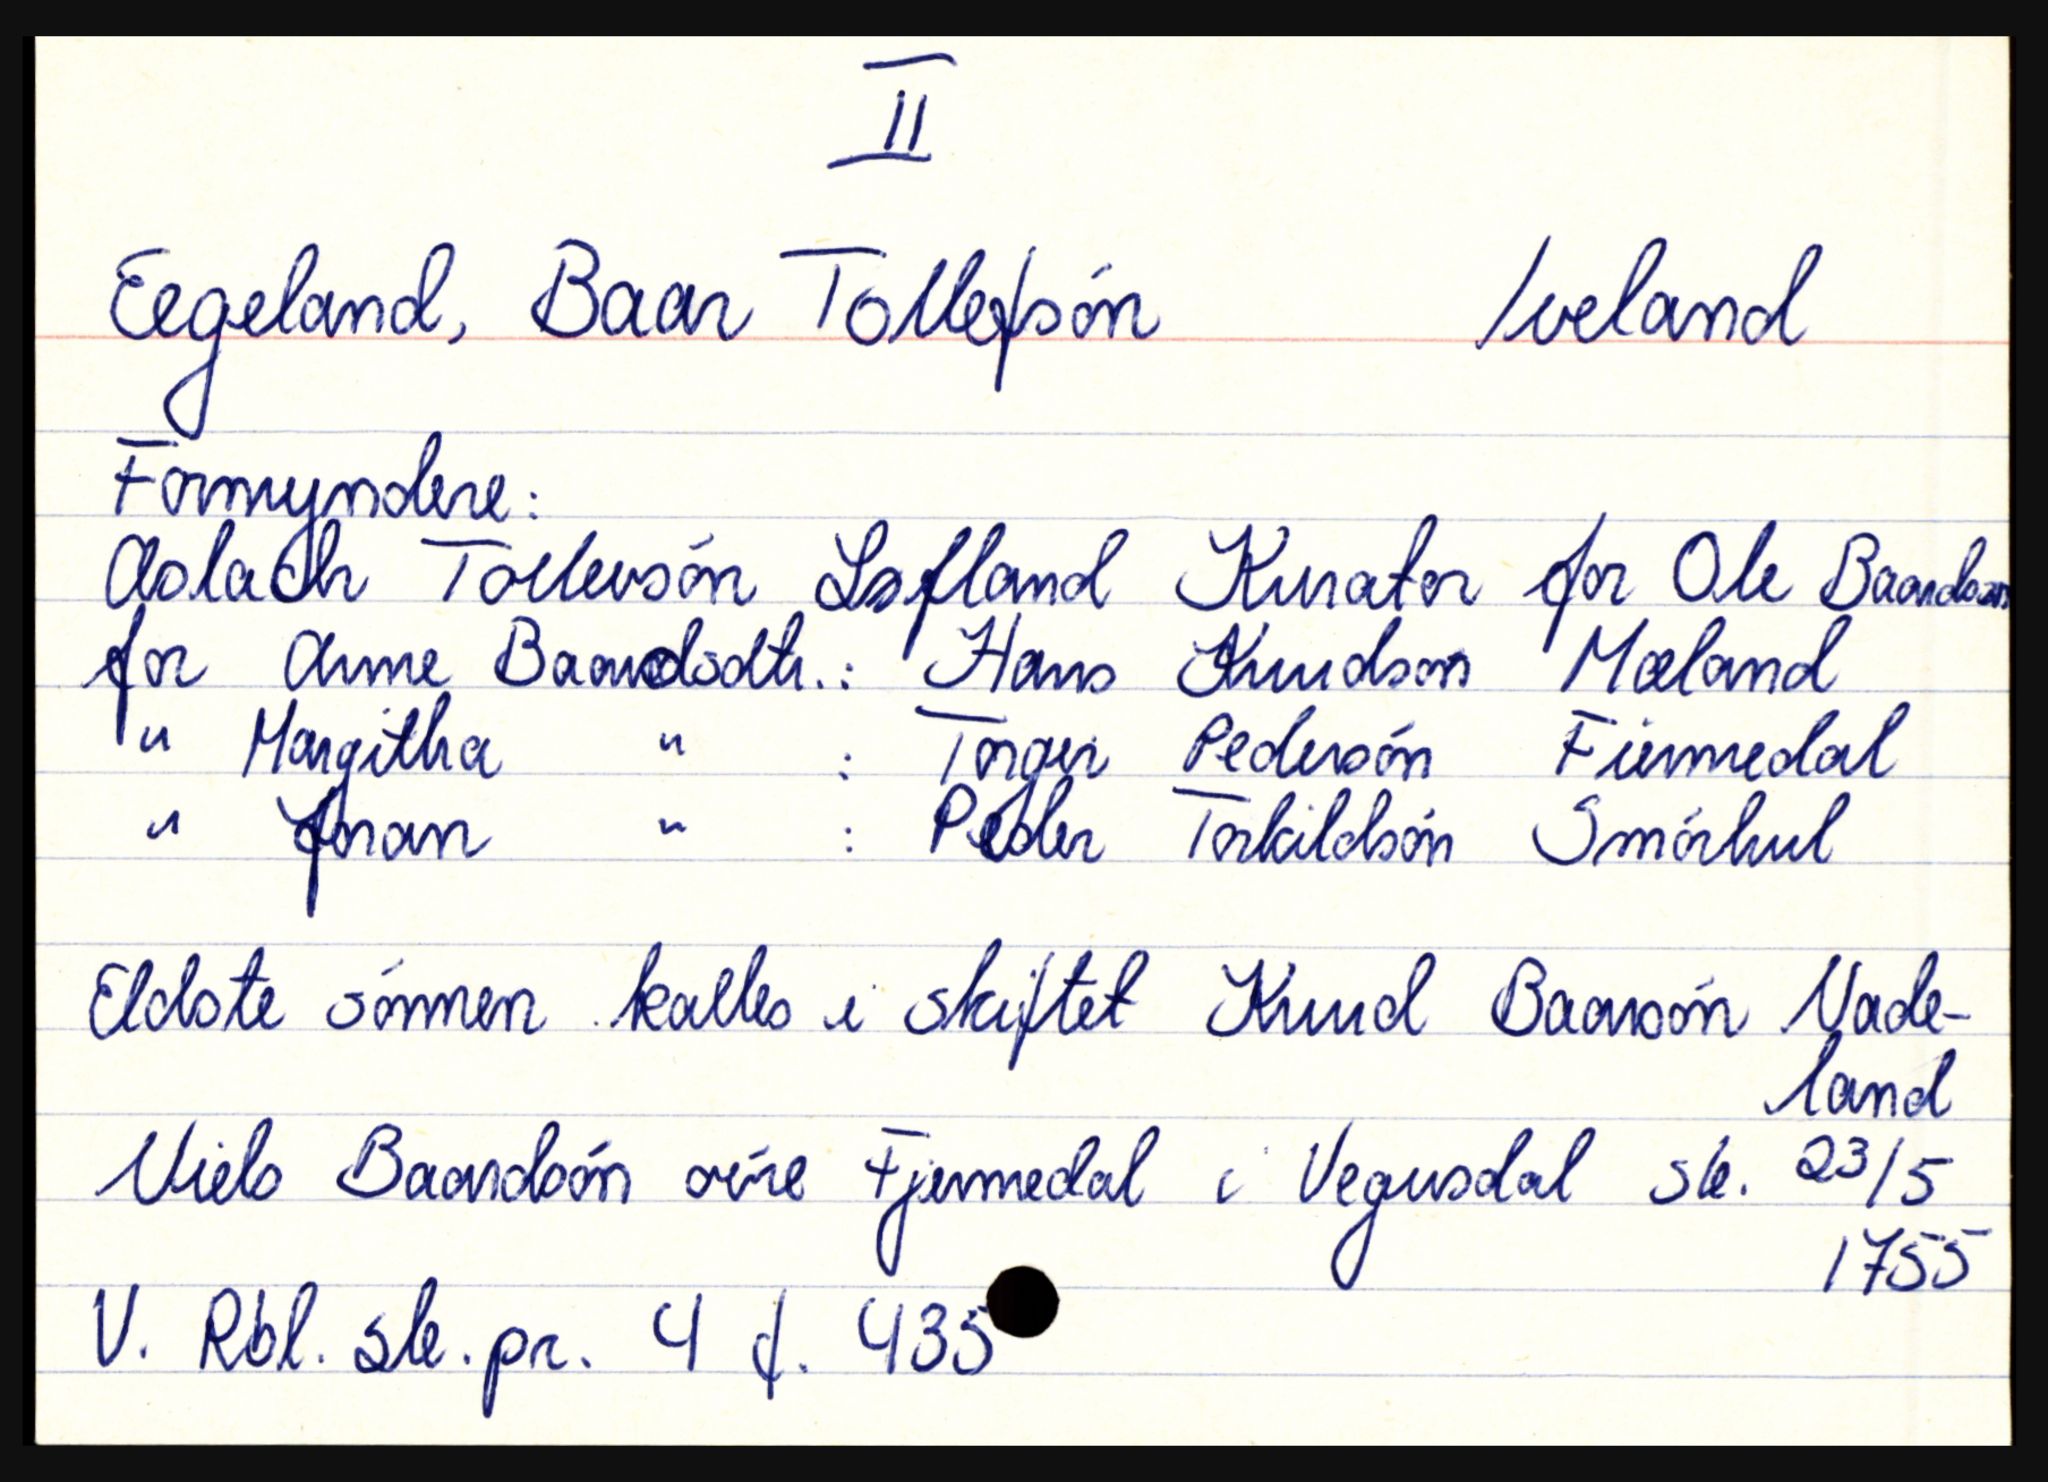 II
Eegeland, Baar Tollefsón Iveland
Formyndere:
Aslach Tollevsón Lofland Kurator for Ole Baardson
for Anne Baardsdtr.: Hans Knudsón Mæland
" Margitha " : Torger Pedersón Fiermedal
" Joran " : Peder Torkildsón Smórhul
Eldste sónnen kalles i skiftet Knud Baarsón Vade-
land
Niels Baardsón óvre Fjermedal i Vegusdal sk. 23/5
1755
V. Rbl. sk. pr. 4 f. 435